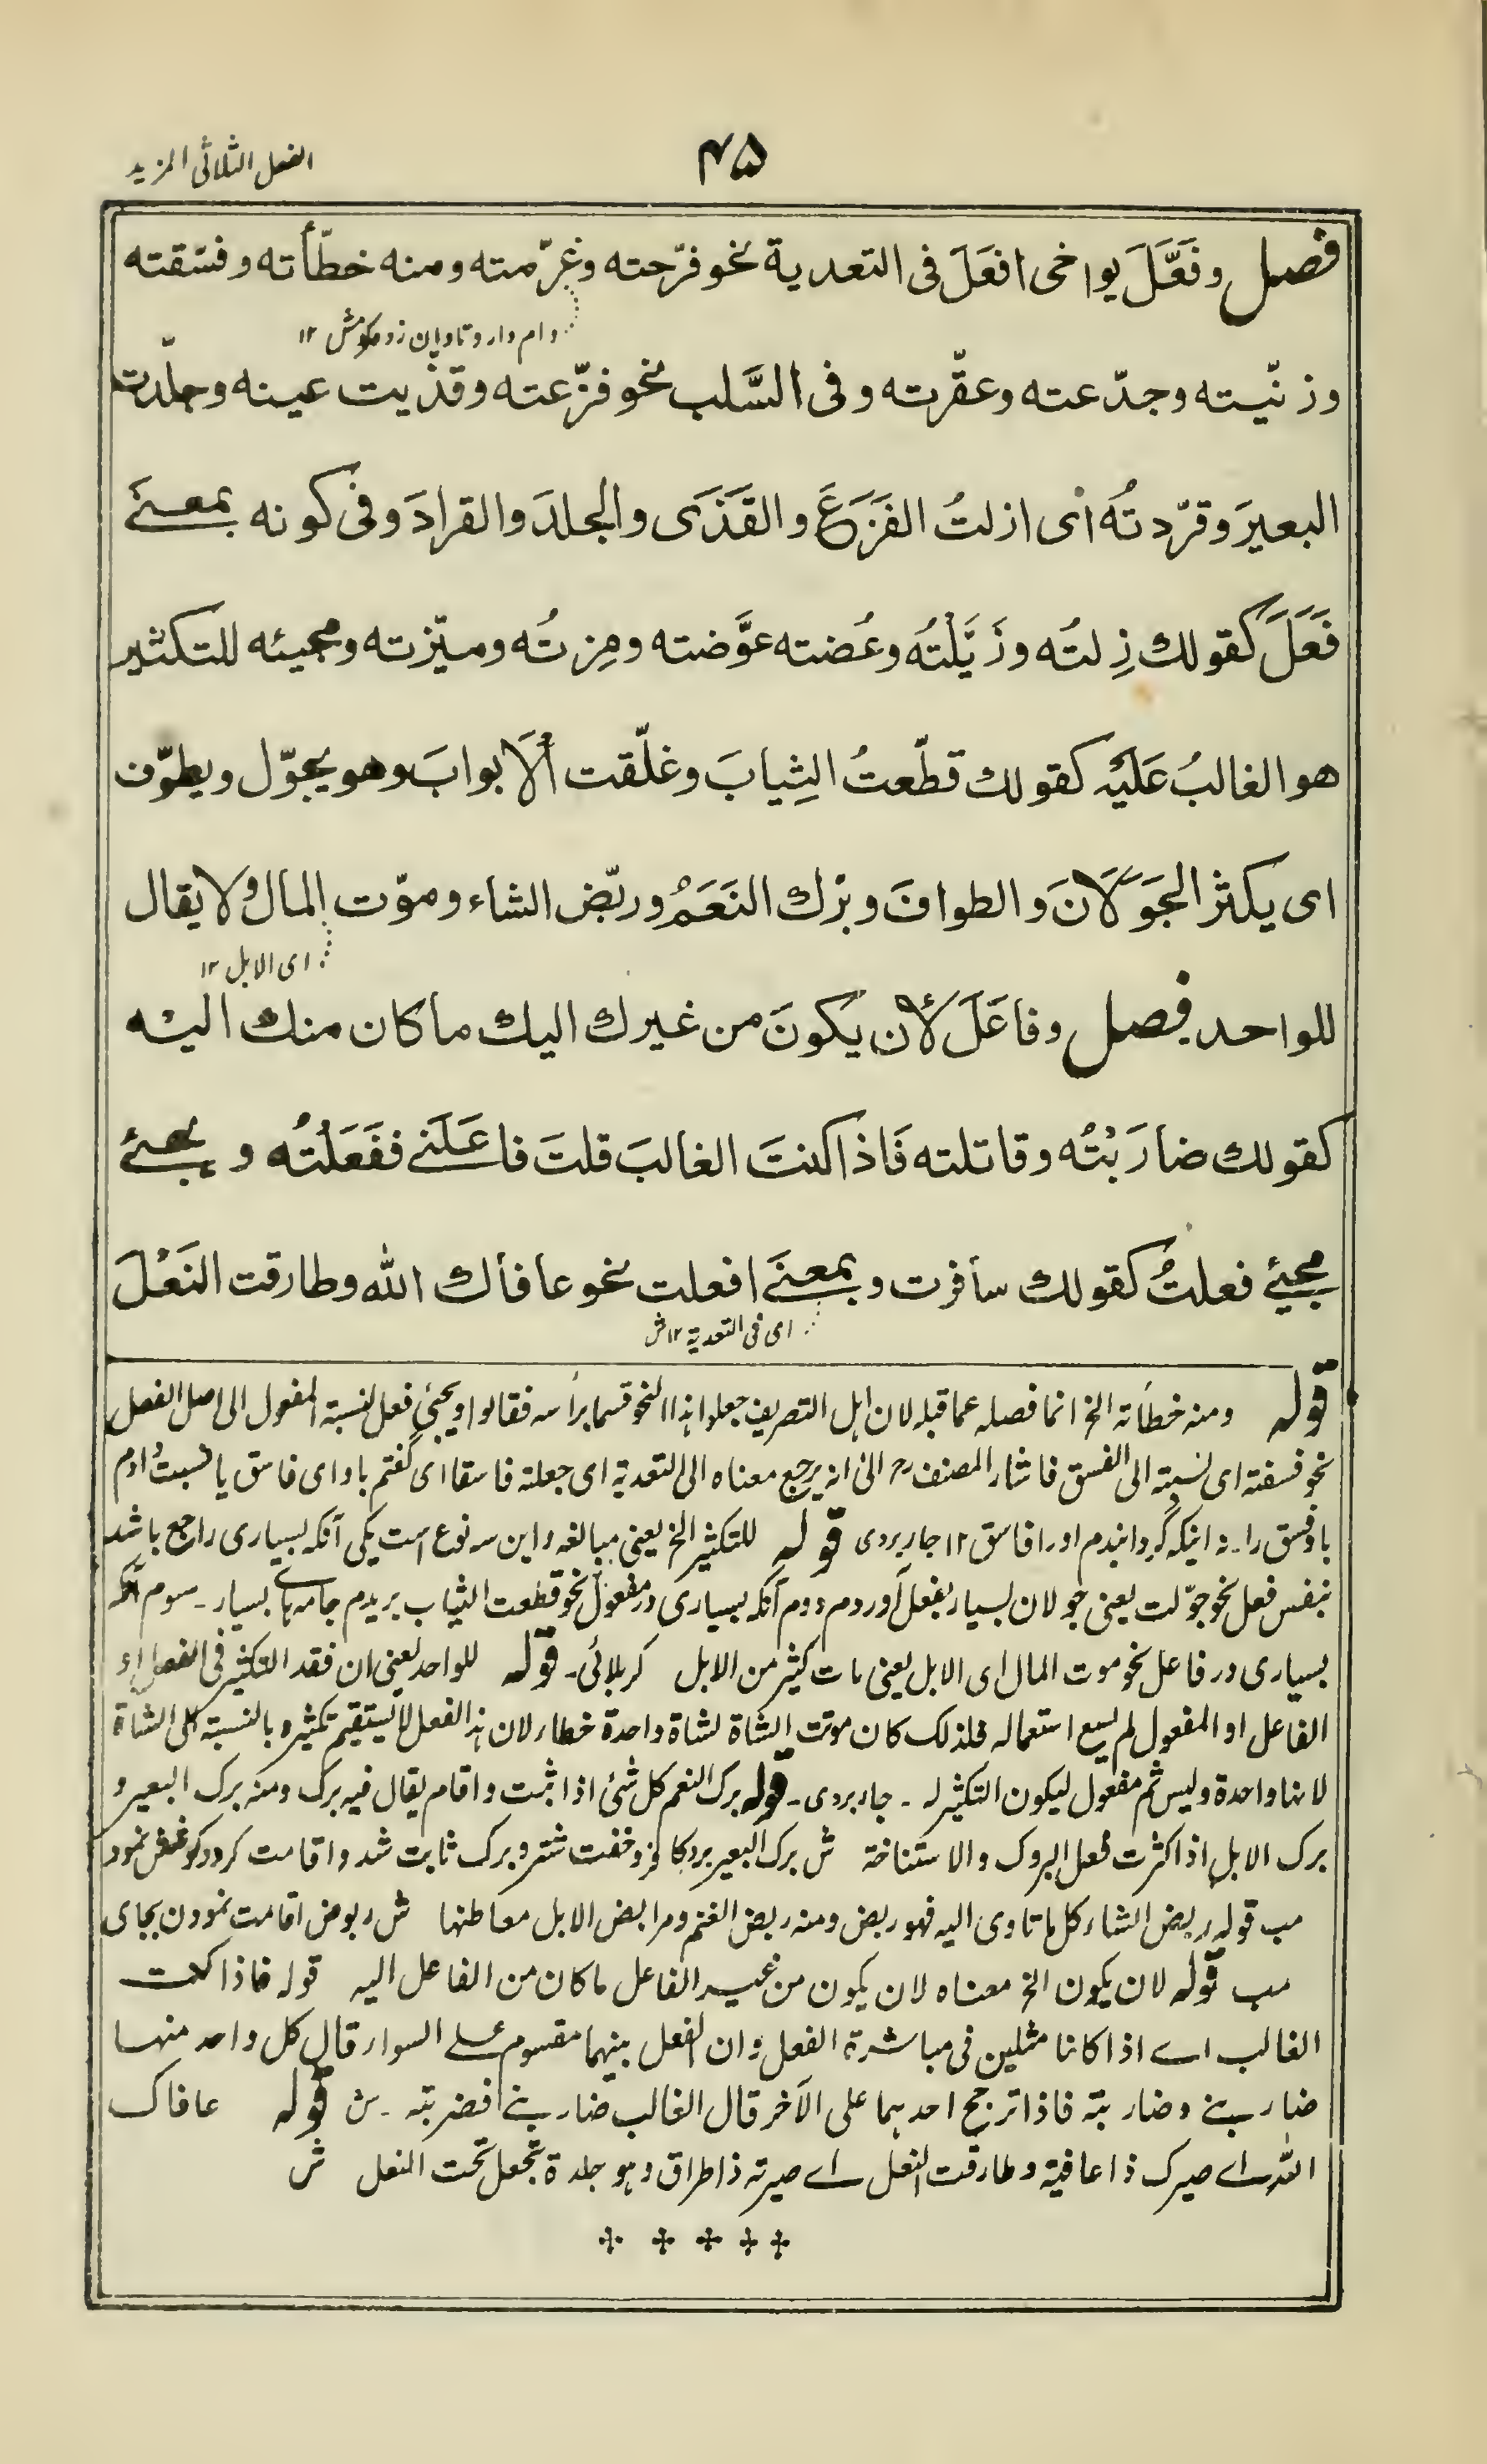 الفعل الثلاثى المزيد
٤٥
فصل وفَعَّلَ يواخى افعَلَ فى التعدية نحو فرّحته وغرّمته ومنه خطّأته وفسّقته
وام دار وتاوان زد ۱۲
وزنّيته وجدّعته وعقّرته وفى السَّلب نحو فزّعته وقذّيت عينه وجلّدت
البعيرَ وقرّدتُه اى ازلتُ الفَزَعَ والقَذَى والجلدَ والقرادَ وفى كونه بمعنى
فَعَلَ كقولك زِلتُه وزَيَّلْتُه وعُضته عوَّضته ومِزتُه وميّزته ومجيئه للتكثير
هو الغالبُ عَلَيْه كقولك قطّعتُ الثِيابَ وغلّقت ألاَبوابَ وهو يجوّل ويطوّف
اى يكثر الجَوَلَانَ والطوافَ وبرّك النَعَمُ وربّض الشاء وموّت المال ولا يقال
اى الابل ۱۲
للواحد فصل وفاعَلَ لأن يكونَ من غيرك اليك ما كان منك اليْه
كقولك ضارَبْتُه وقاتلته فَاذا كنتَ الغالبَ قلتَ فاعَلَنى ففَعَلْتُه و يجئ
مجيئ فعلتُ كقولك سافرت وبمعنَى افعلت نحو عافاك الله وطارقت النَعْلَ
اى فى التعدية ۱۲ ش
قوله ومنه خطأته الخ انما فصله عما قبله لان اهل التصريف جعلوا هذا النحو قسما برأسه فقالوا ويجئ فعل لنسبة المفعول الى اصل الفعل
نحو فسقته اى نسبته الى الفسق فاشار المصنف رح الى انه يرجع معناه الى التعدية اى جعلته فاسقا اى گفتم باو اى فاسق يا نسبت دادم
باو فسق را۔ نه اينكه گردانيدم او را فاسق ۱۲ جاربردى قوله للتكثير الخ يعنى مبالغه واين سه نوع است يكى آنكه بسيارى راجع باشد
بنفس فعل نحو جوّلت يعنى جولان بسيار بفعل آوردم دوم آنكه بسيارى در مفعول نحو قطعت الثياب بريدم جامه هاے بسيار۔ سوم آنكه
بسيارى در فاعل نحو موت المال اى الابل يعنى مات كثير من الابل كربلائى۔ قوله للواحد يعنى ان فقد التكثير فى الفعل او
الفاعل او المفعول لم يسغ استعماله فلذلك كان موتت الشاة لشاة واحدة خطاء لان هذا الفعل لا يستقيم تكثيره بالنسبة الى الشاة
لانها واحدة وليس ثم مفعول ليكون التكثير له ۔ جاربردى۔ قوله برك النعم كل شئ اذا ثبت واقام يقال فيه برك ومنه برك البعير و
برك الابل اذا كثرت فعل البروك والاستناخة ش برك البعير بروكا فرو خفت شتر و برك ثابت شد واقامت كرد
مب قوله ربض الشاء كل ما تاوى اليه فهو ربض ومنه ربض الغنم ومرابض الابل معاطنها ش ربوض اقامت نمودن بجاى
مب قوله لان يكون الخ معناه لان يكون من غير الفاعل ما كان من الفاعل اليه قوله فاذا كنت
الغالب اے اذا كانا مثلين فى مباشرة الفعل وان الفعل بينهما مقسوم على السواء قال كل واحد منها
ضاربنى وضاربته فاذا ترجح احدهما على الآخر قال الغالب ضاربنى فضربته ۔ ش قوله عافاك
الله اے صيرك ذا عافية وطارقت النعل اے صيرته ذا طراق وهو جلدة تجعل تحت النعل ش